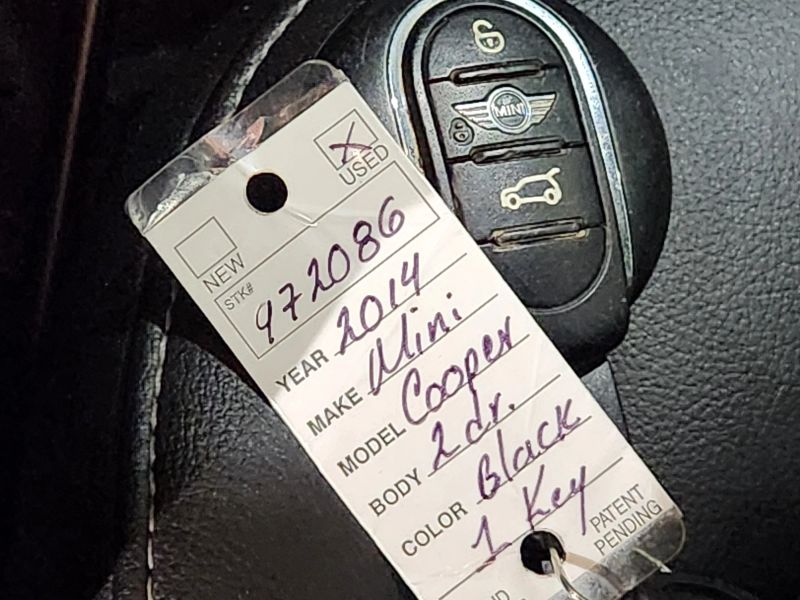 USED
NEW
STK#
972086
YEAR 2014
MAKE Mini
MODEL Cooper
BODY 2 dr.
COLOR Black
1 Key
PATENT
PENDING
MINI